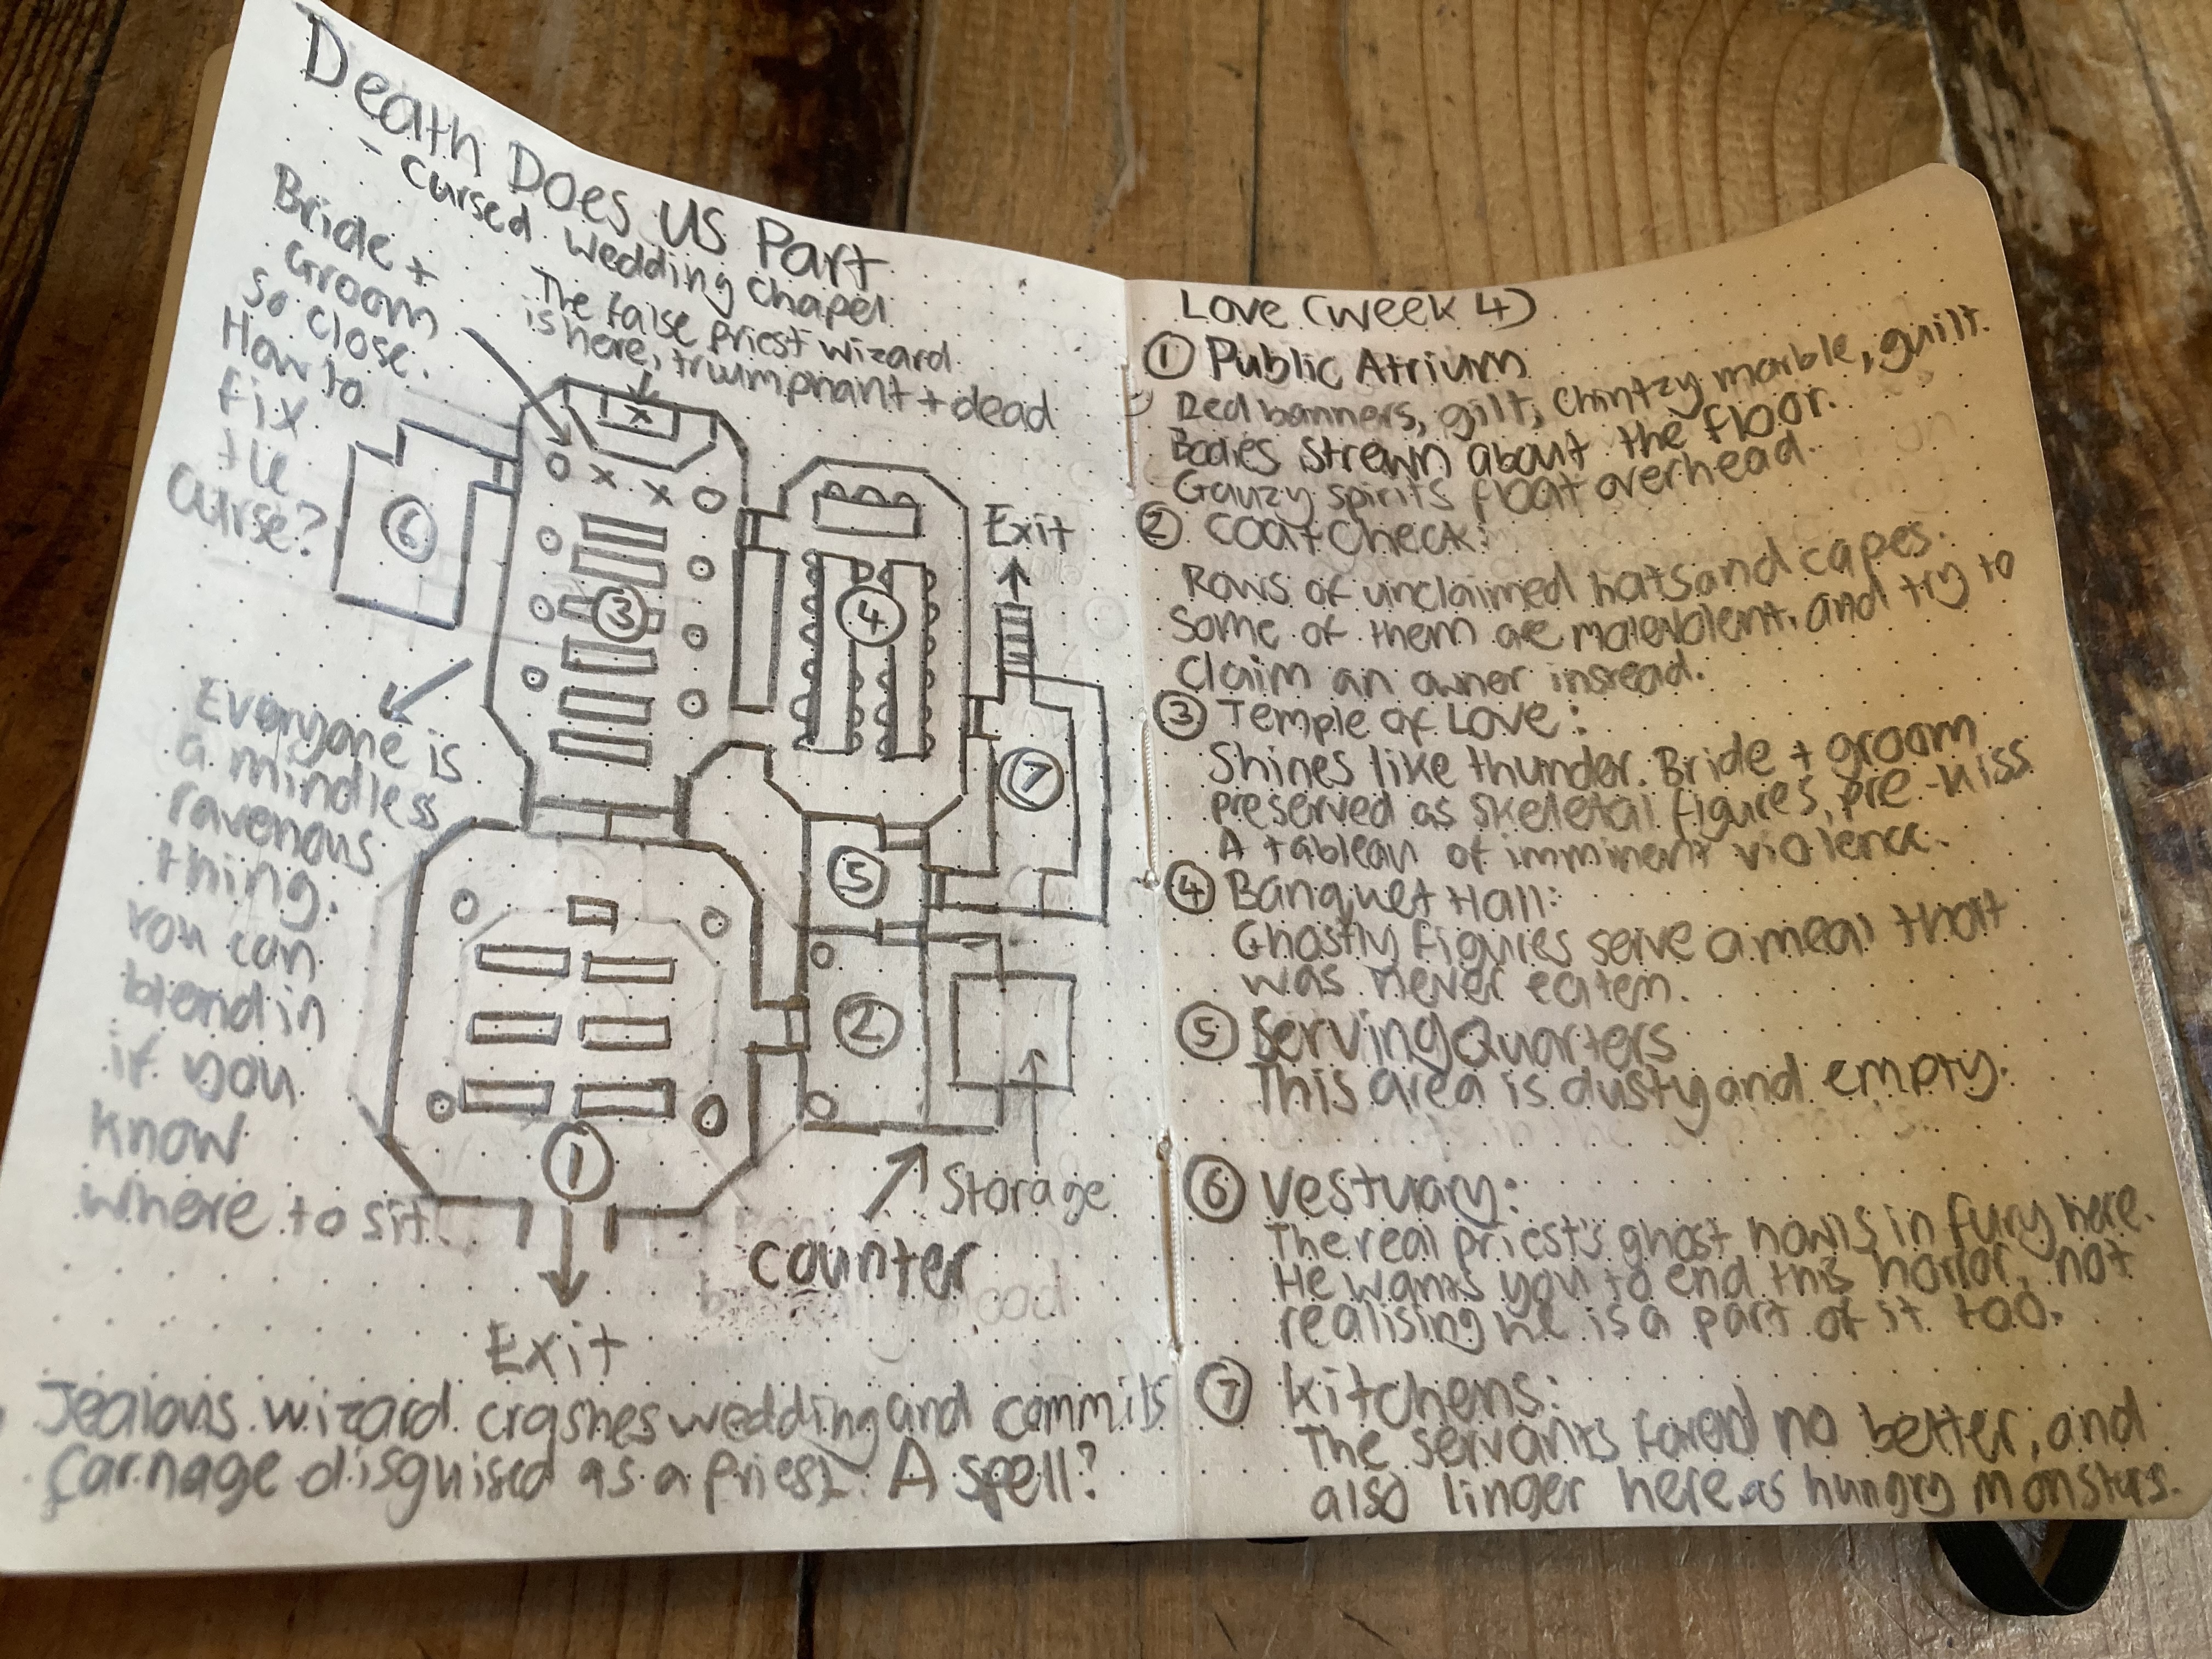 Death Does Us Part
- Cursed Wedding Chapel
Bride +
Groom
so close.
How to
fix
the
curse?
The false priest wizard
is here, triumphant + dead
6
3
4
Exit
7
5
2
1
Everyone is
a mindless
ravenous
thing.
You can
blend in
if you
know
where to sit.
Storage
counter
Exit
Jealous wizard crashes wedding and commits
carnage disguised as a priest. A spell?
Love (week 4)
1 Public Atrium
Red banners, gilt, chintzy marble, guilt.
Bodies strewn about the floor.
Gauzy spirits float overhead.
2 Coat Check:
Rows of unclaimed hats and capes.
Some of them are malevolent, and try to
claim an owner instead.
3 Temple of Love:
Shines like thunder. Bride + groom
preserved as skeletal figures, pre-kiss
A tableau of imminent violence.
4 Banquet Hall:
Ghostly figures serve a meal that
was never eaten.
5 Serving Quarters
This area is dusty and empty.
6 Vestuary:
The real priest's ghost howls in fury here.
He wants you to end this horror, not
realising he is a part of it too.
7 Kitchens:
The servants fared no better, and
also linger here as hungry monsters.